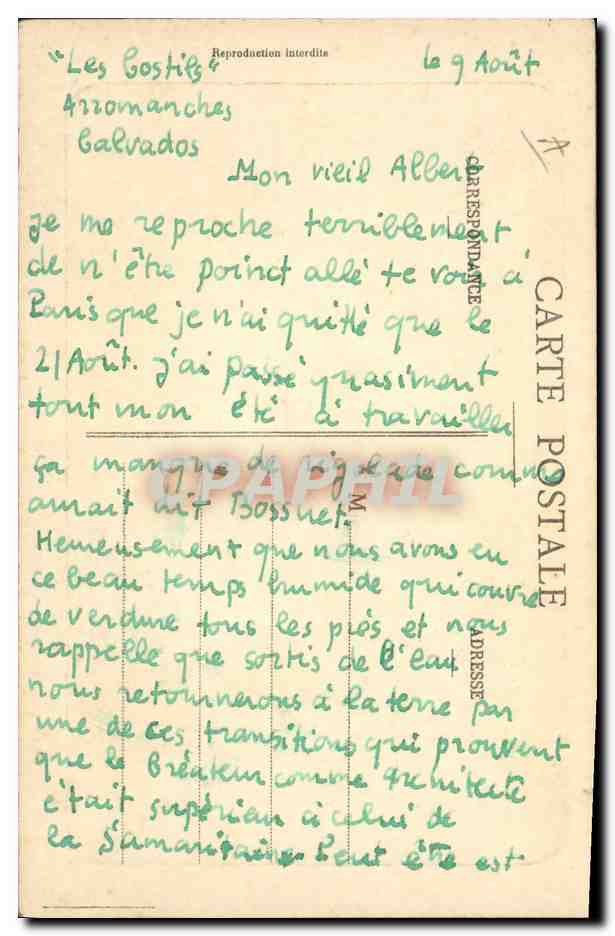 Reproduction interdite
"Les Costils"
le 9 Août
Arromanches
Calvados
Mon vieil Albert
je me reproche terriblement
de n'être poinct allé te voir à
Paris que je n'ai quitté que le
21 Août. j'ai passé quasiment
tout mon été à travailler
ça manque de rigolade comme
aurait dit Bossuet.
Heureusement que nous avons eu
ce beau temps humide qui couvre
de verdure tous les prés et nous
rappelle que sortis de l'eau
nous retournerons à la terre par
une de ces transitions qui prouvent
que le Créateur comme Architecte
était supérieur à celui de
la Samaritaine. Peut être est
CORRESPONDANCE
CARTE POSTALE
M
ADRESSE
CPAPHIL
A